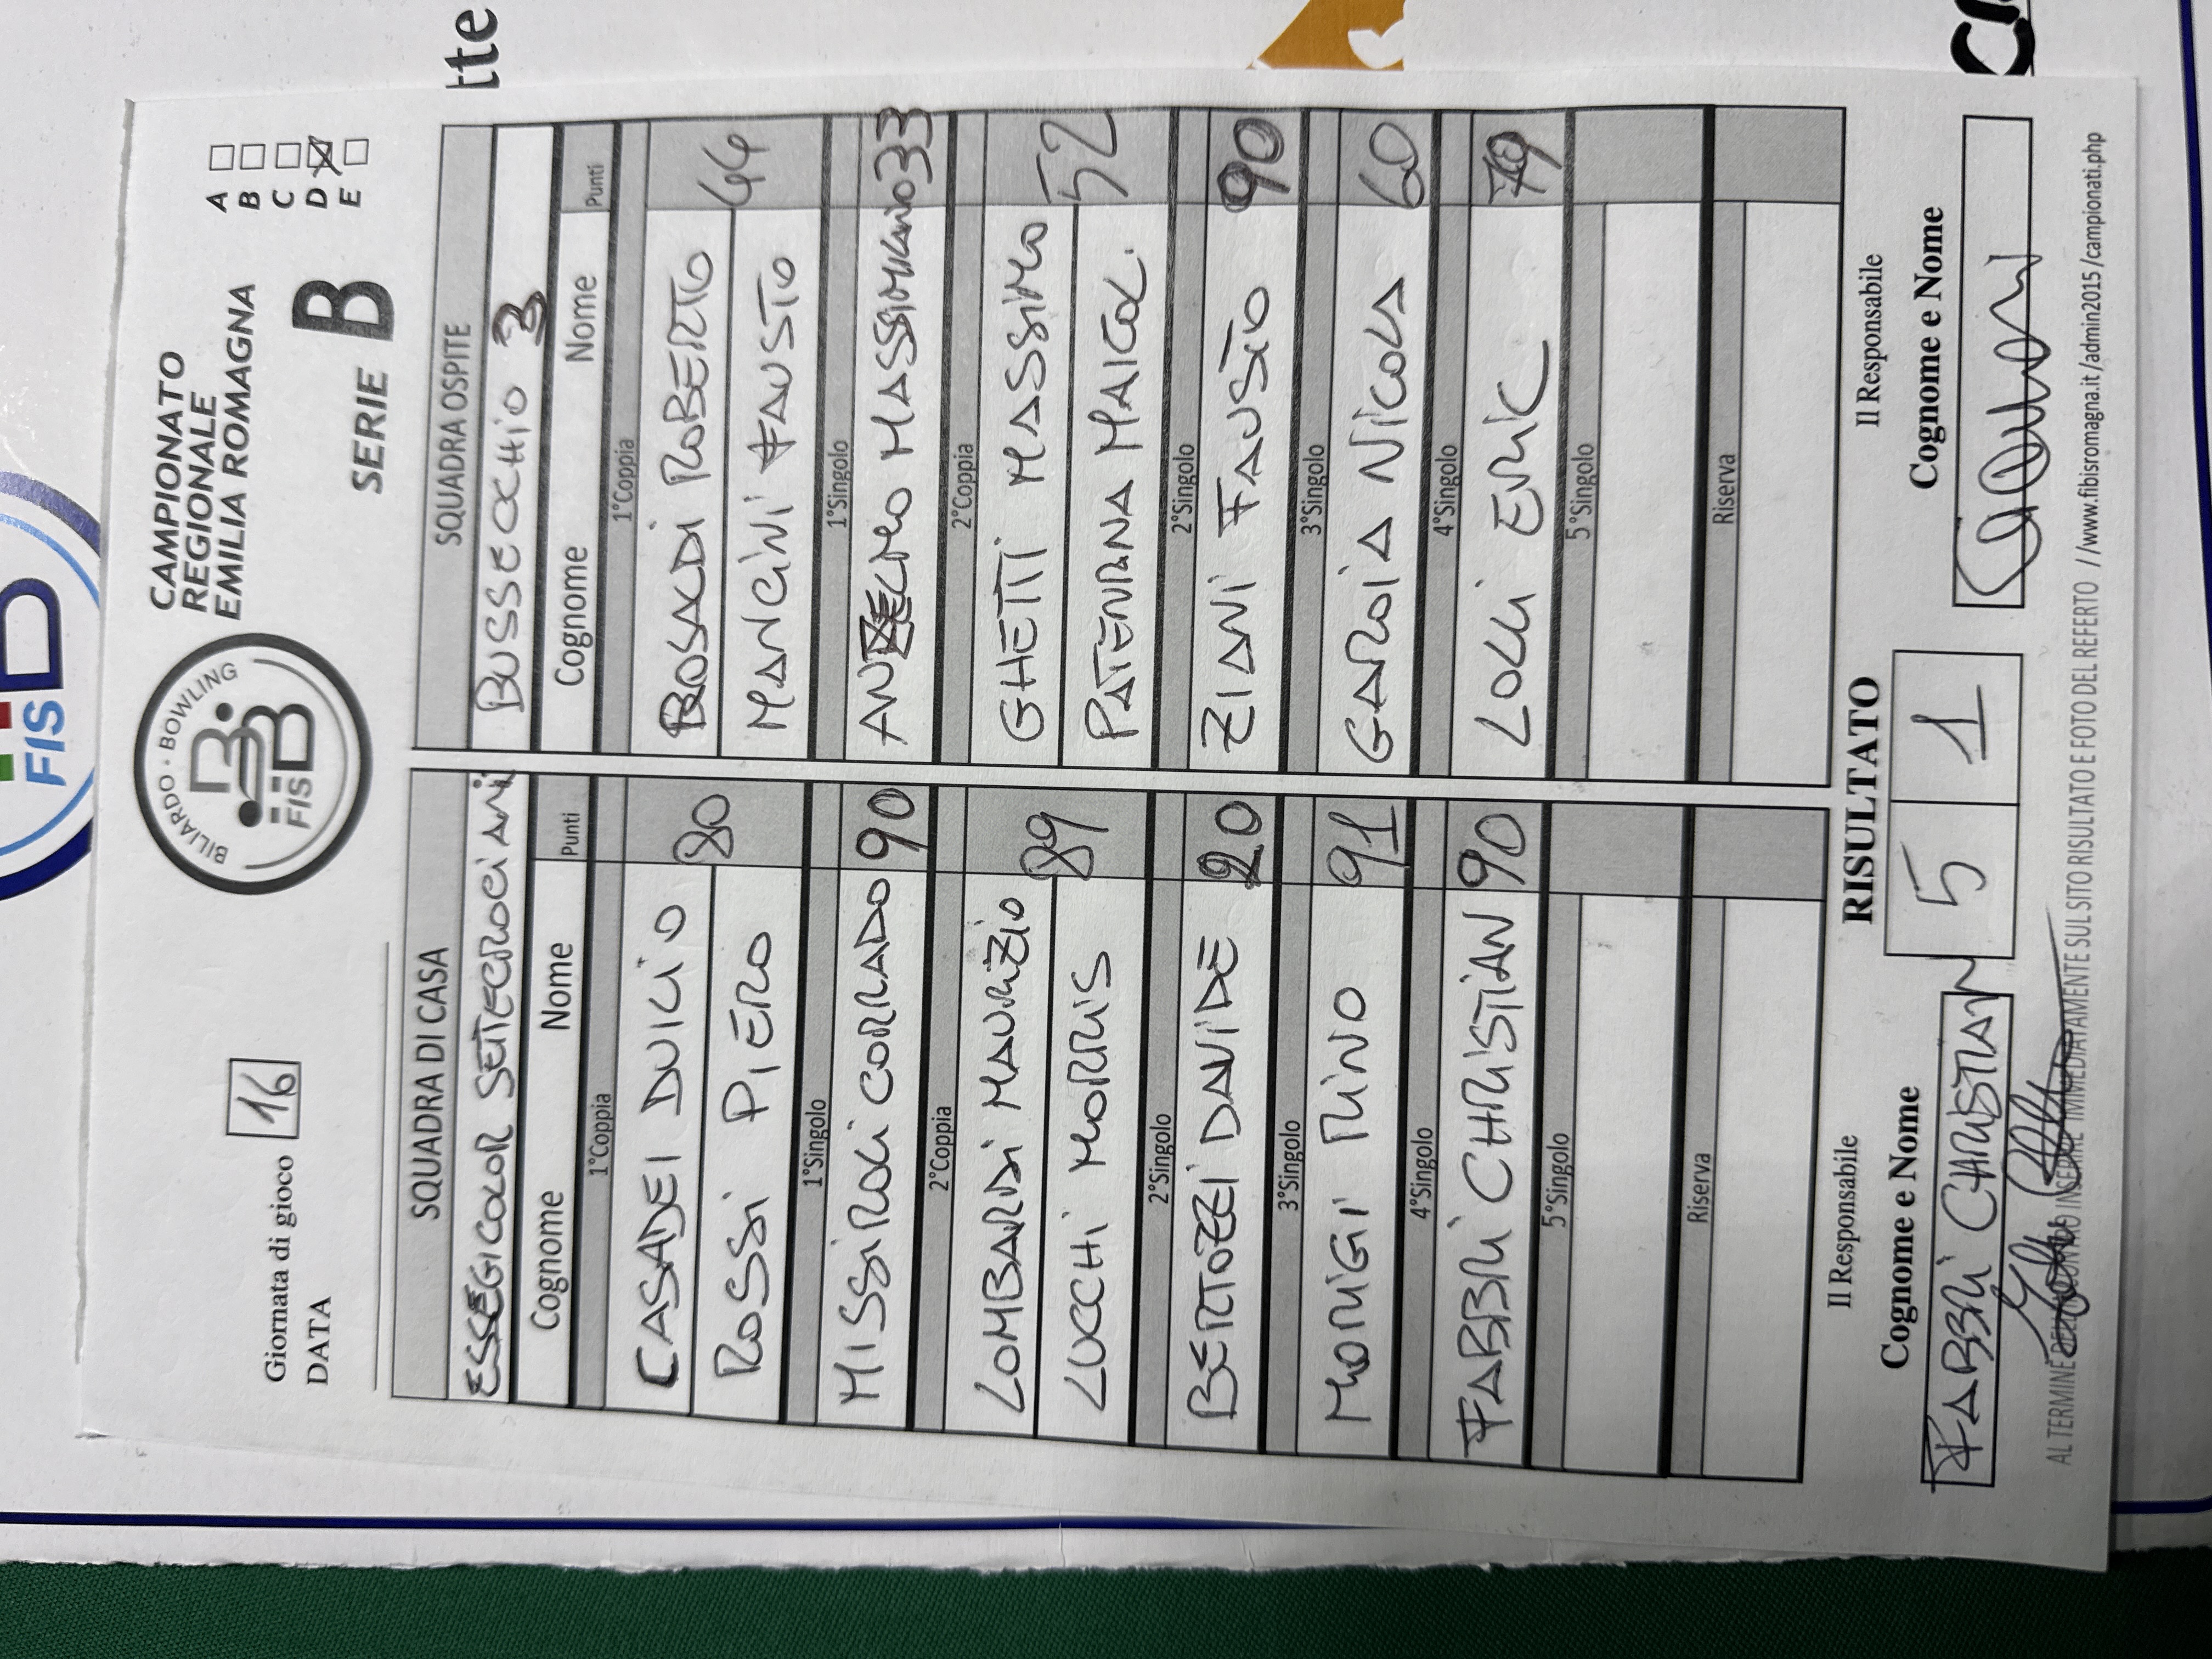 Giornata di gioco 16
DATA
BILIARDO · BOWLING
FISBB
CAMPIONATO
REGIONALE
EMILIA ROMAGNA
SERIE B
A
B
C
D
E
SQUADRA DI CASA
ESSEGICOLOR SETTECROCIARI
Cognome Nome Punti
1°Coppia
CASADEI DUILIO 80
ROSSI PIERO
1°Singolo
MISSIROLI CORRADO 90
2°Coppia
LOMBARDI MAURIZIO 89
LUCCHI MORRIS
2°Singolo
BERTOZZI DAVIDE
3°Singolo
MORIGI RINO 91
4°Singolo
FABBRI CHRISTIAN 90
5°Singolo
Riserva
SQUADRA OSPITE
BUSSECCHIO 3
Cognome Nome Punti
1°Coppia
BOSALDI ROBERTO 44
MANCINI FAUSTO
1°Singolo
MASSIMILIANO 33
2°Coppia
GHETTI MASSIMO 52
PATERNA MAICOL.
2°Singolo
ZIANI FAUSTO 90
3°Singolo
GAROIA NICOLA 60
4°Singolo
LOLLI ERIC 79
5°Singolo
Riserva
RISULTATO
5 1
Il Responsabile
Cognome e Nome
FABBRI CHRISTIAN
Il Responsabile
Cognome e Nome
AL TERMINE INSERIRE IMMEDIATAMENTE SUL SITO RISULTATO E FOTO DEL REFERTO //www.fibisromagna.it/admin2015/campionati.php
FIS
tte